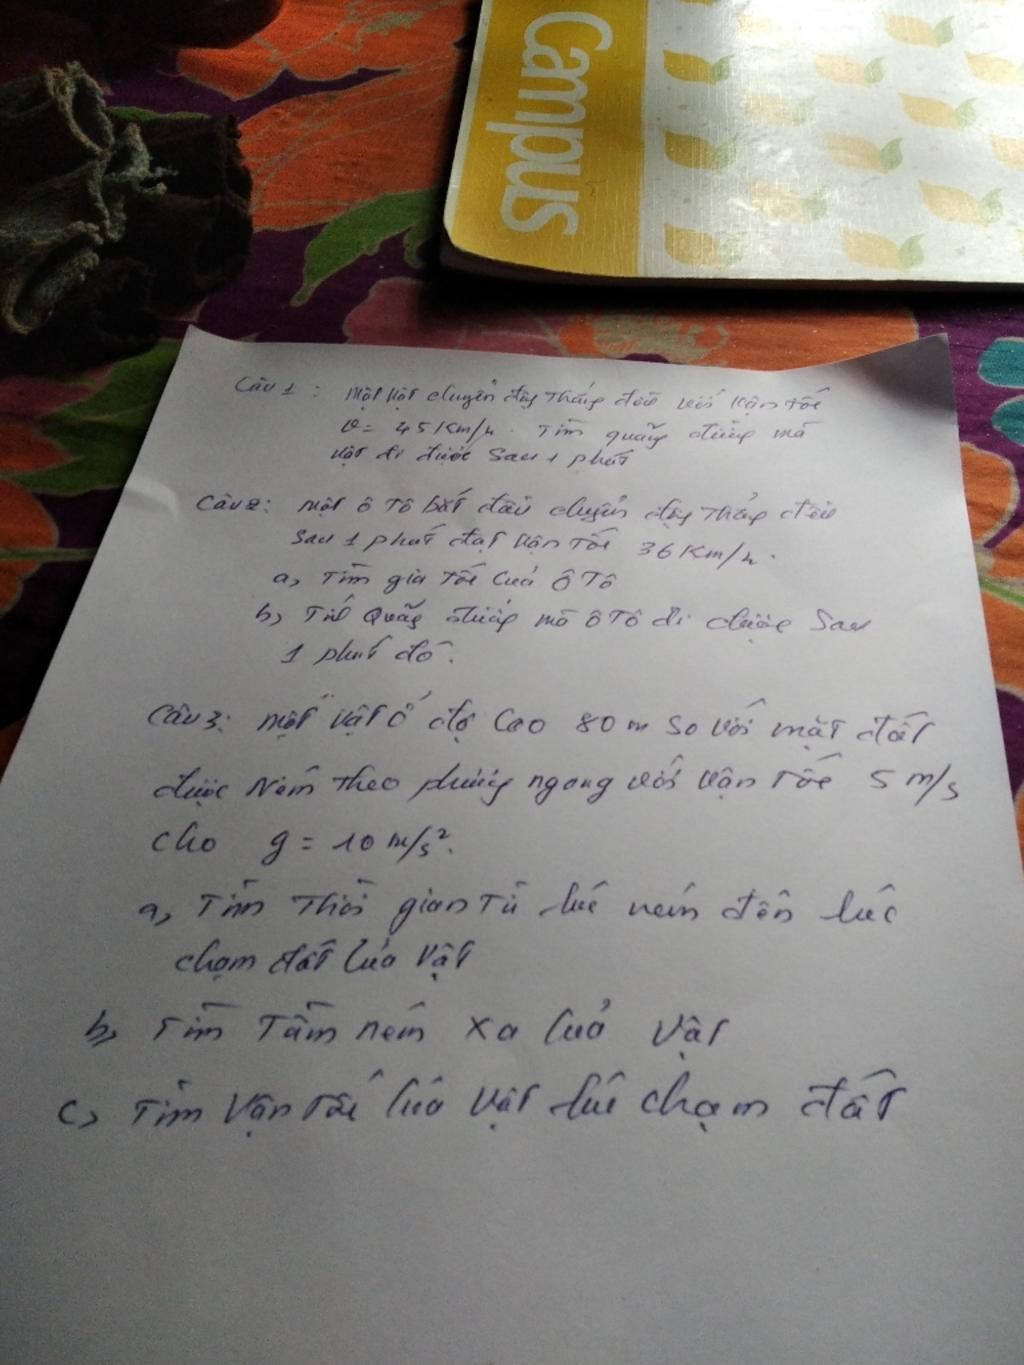 Campus
Câu 1: Một vật chuyển động thẳng đều với vận tốc
v = 45 km/h. Tìm quãng đường mà
vật đi được sau 1 phút
Câu 2: Một ô tô bắt đầu chuyển động thẳng đều
sau 1 phút đạt vận tốc 36 km/h.
a, Tìm gia tốc của ô tô
b, Tính quãng đường mà ô tô đi được sau
1 phút đó.
Câu 3: Một vật ở độ cao 80 m so với mặt đất
được ném theo phương ngang với vận tốc 5 m/s
cho g = 10 m/s².
a, Tìm thời gian từ lúc ném đến lúc
chạm đất của vật
b, Tìm tầm ném xa của vật
c, Tìm vận tốc của vật lúc chạm đất